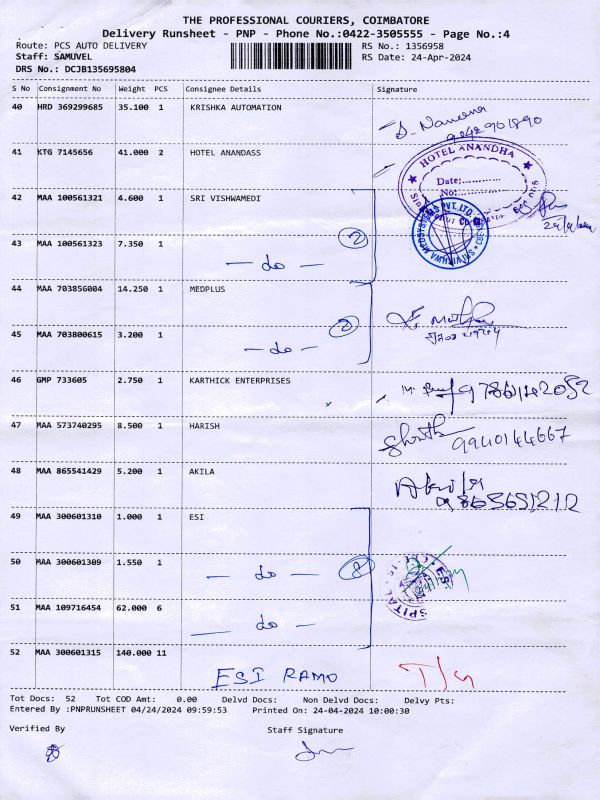 THE PROFESSIONAL COURIERS, COIMBATORE
Delivery Runsheet - PNP - Phone No.:0422-3505555 - Page No.:4
Route: PCS AUTO DELIVERY RS No.: 1356958
Staff: SAMUVEL RS Date: 24-Apr-2024
DRS No.: DCJB135695804
S No Consignment No Weight PCS Consignee Details Signature
40 HRD 369299685 35.100 1 KRISHKA AUTOMATION
41 KTG 7145656 41.000 2 HOTEL ANANDASS
HOTEL ANANDHA
Date:............
No:............
42 MAA 100561321 4.600 1 SRI VISHWAMEDI
43 MAA 100561323 7.350 1
— do — 2
44 MAA 703856004 14.250 1 MEDPLUS
45 MAA 703800615 3.200 1
— do — 2
46 GMP 733605 2.750 1 KARTHICK ENTERPRISES
47 MAA 573740295 8.500 1 HARISH
9940144667
48 MAA 865541429 5.200 1 AKILA
Akila
49 MAA 300601310 1.000 1 ESI
50 MAA 300601309 1.550 1
— do — 8
51 MAA 109716454 62.000 6
— do —
52 MAA 300601315 140.000 11
ESI RAMO
Tot Docs: 52 Tot COD Amt: 0.00 Delvd Docs: Non Delvd Docs: Delvy Pts:
Entered By :PNPRUNSHEET 04/24/2024 09:59:53 Printed On: 24-04-2024 10:00:30
Verified By Staff Signature